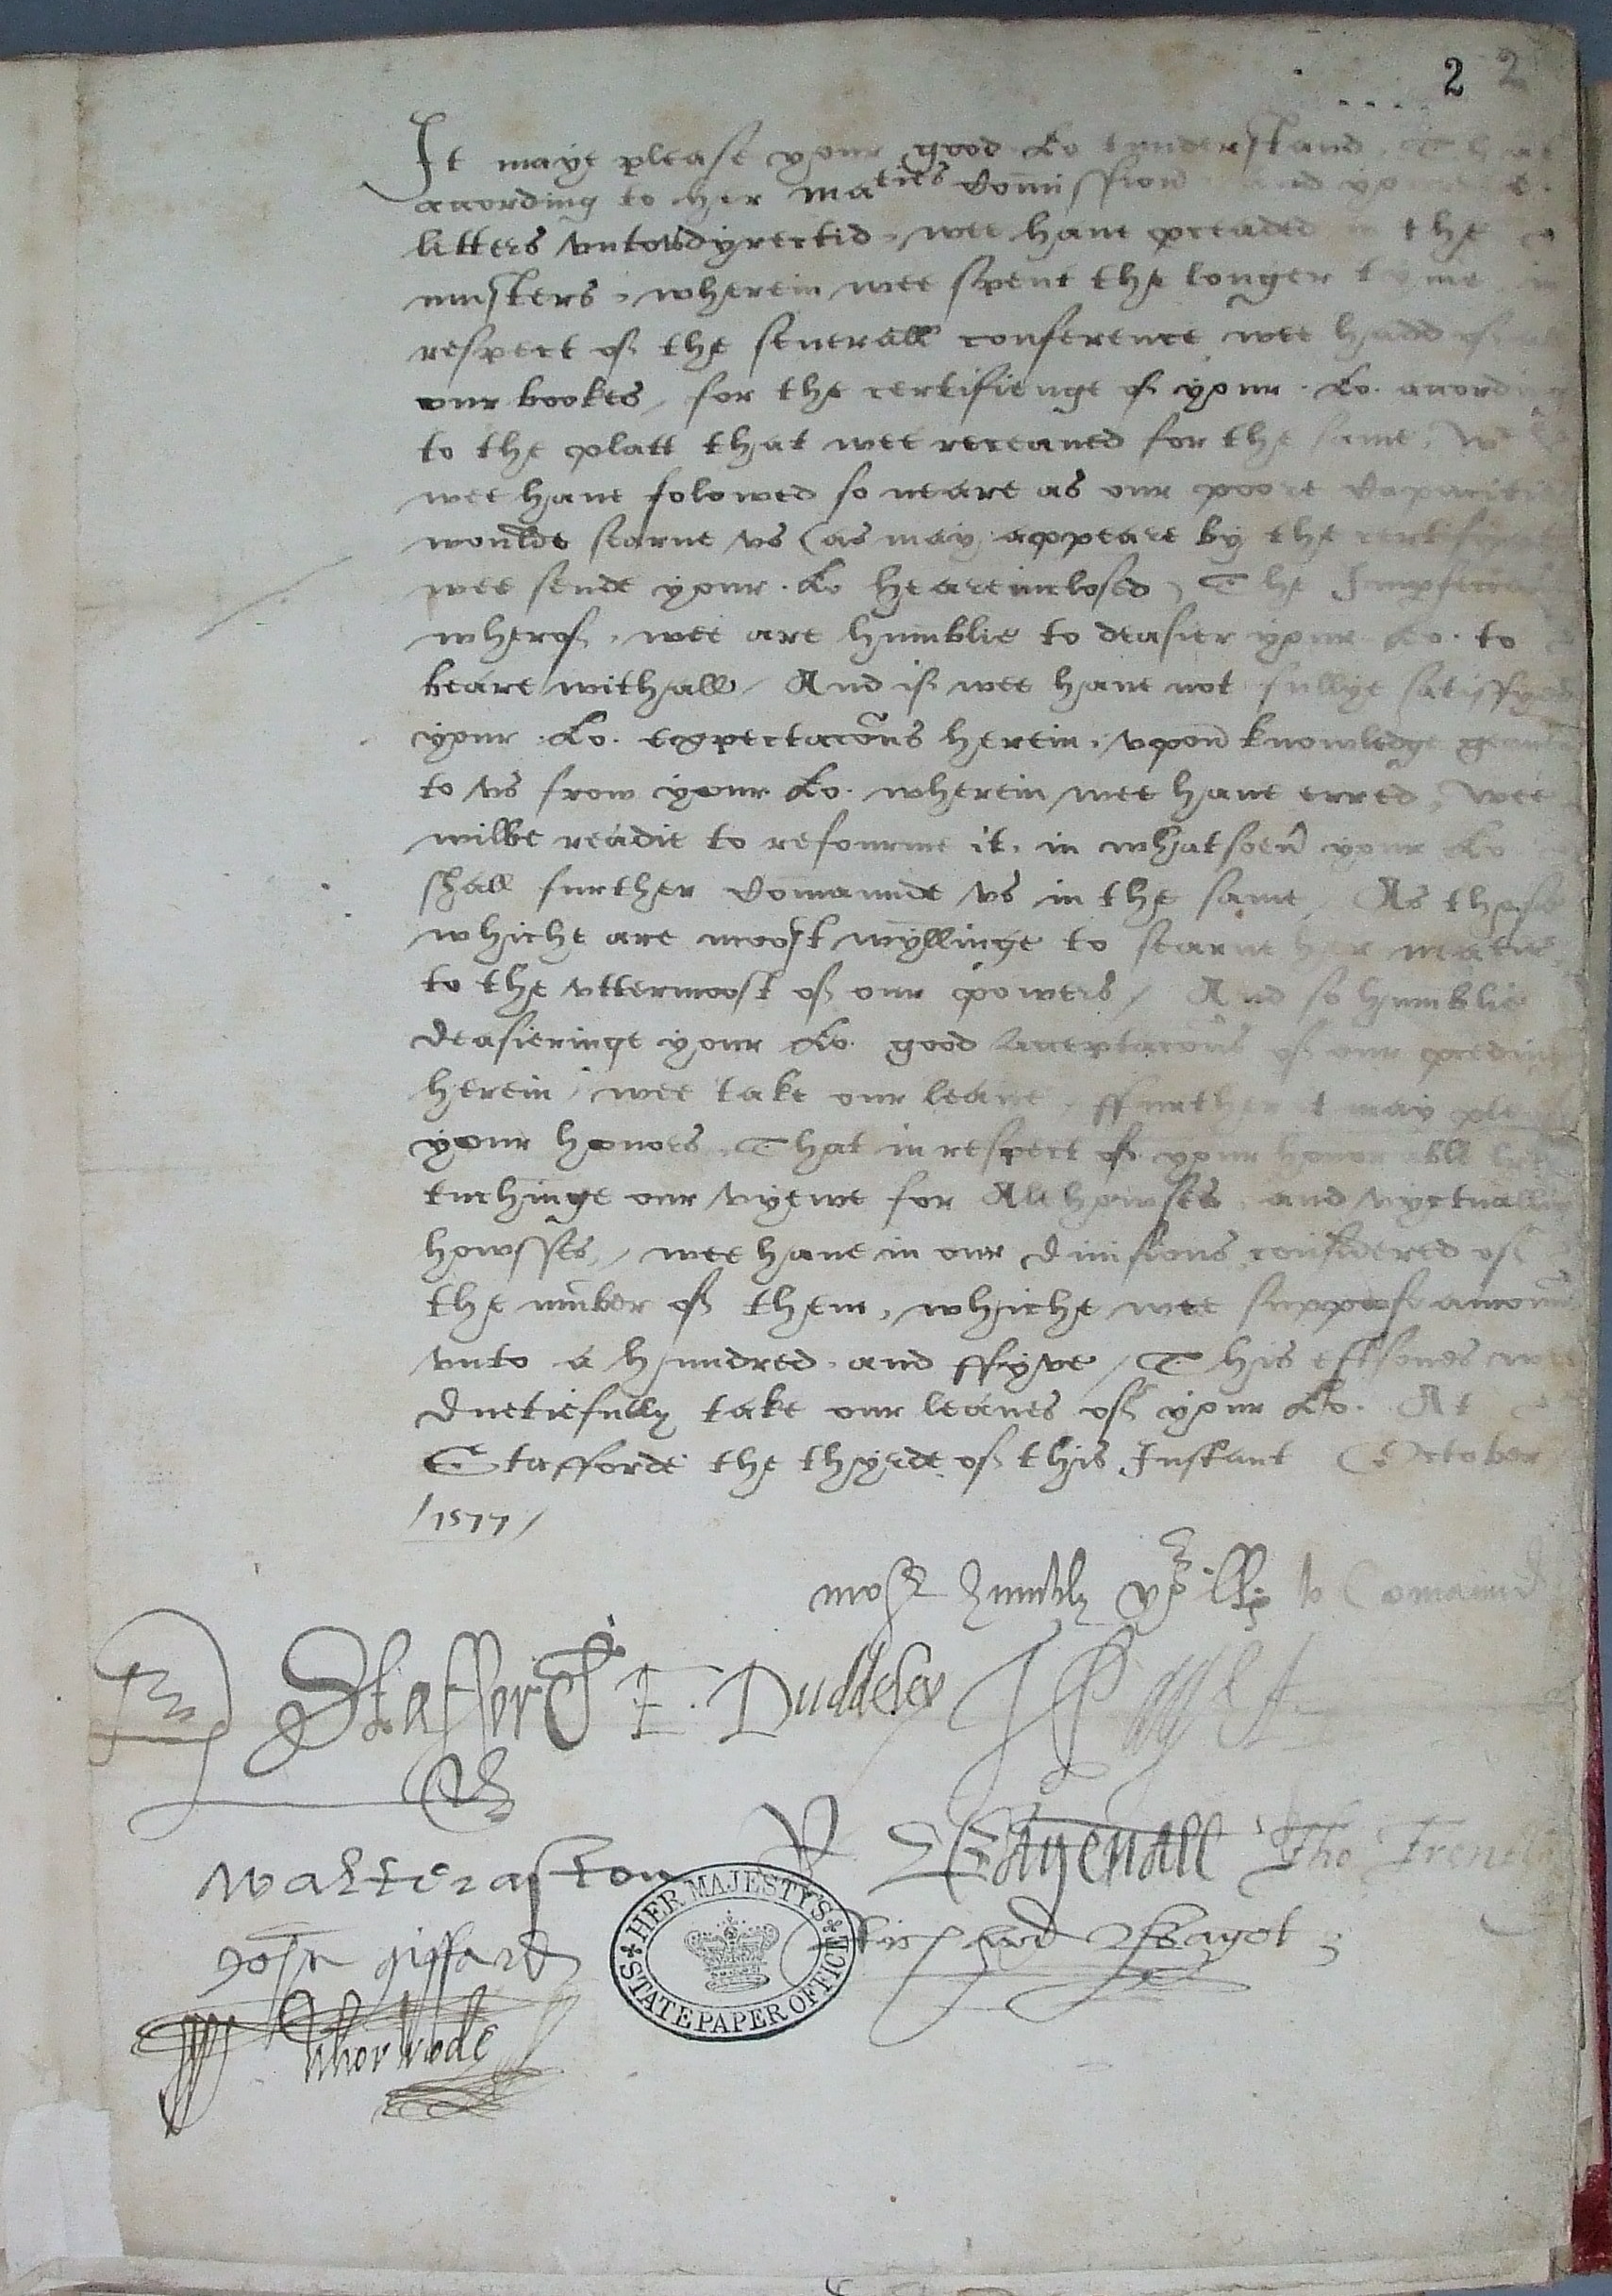 2 2
It maye please your good Lo tunderstand That
acording to her Maties Comission and your
letters vnto vs dyrectid, wee haue proceaded in the
musters, wherein wee spent the longer tyme in
respect of the seuerall conference wee hadd of
our bookes, for the certifienge of your Lo. acording
to the platt that wee receaued for the same,
wee haue folowed so neare as our poore Capacities
woulde searue vs (as may appeare by the certificat
wee sende your Lo heareinclosed) The Imperfeccions
wherof, wee are humblie to deasier your Lo. to
beare withall / And if wee haue not fullye satisfyed
your Lo. expectacons herein, vpon knowledge geauen
to vs from your Lo. wherein wee haue erred, wee
wilbe readie to refourme it, in whatsoeuer your Lo
shall further Comaunde vs in the same / As those
whiche are moost wyllinge to searue her matie
to the vttermoost of our powers / And so humblie
deasieringe your Lo. good acceptacons of our procedings
herein / wee take our leaue, ffurther it may please
your honors, That in respect of your honorable
tuchinge our vyewe for Alehowses and vyctuallinge
howsses, / wee haue in our diuisions considered of
the number of them, whiche wee suppose amount
vnto a hundred and ffyve / This eftsones wee
duetiefully take our leaues of your Lo. At
Stafforde the thyrde of this Instant October
/ 1577 /
most humbly to Comaund
Stafford E. Duddeley T Paget
Walter aston R Bagenall Tho Trentham
John giffard Richard Bagot
Whorwode
HER MAJESTY'S STATE PAPER OFFICE